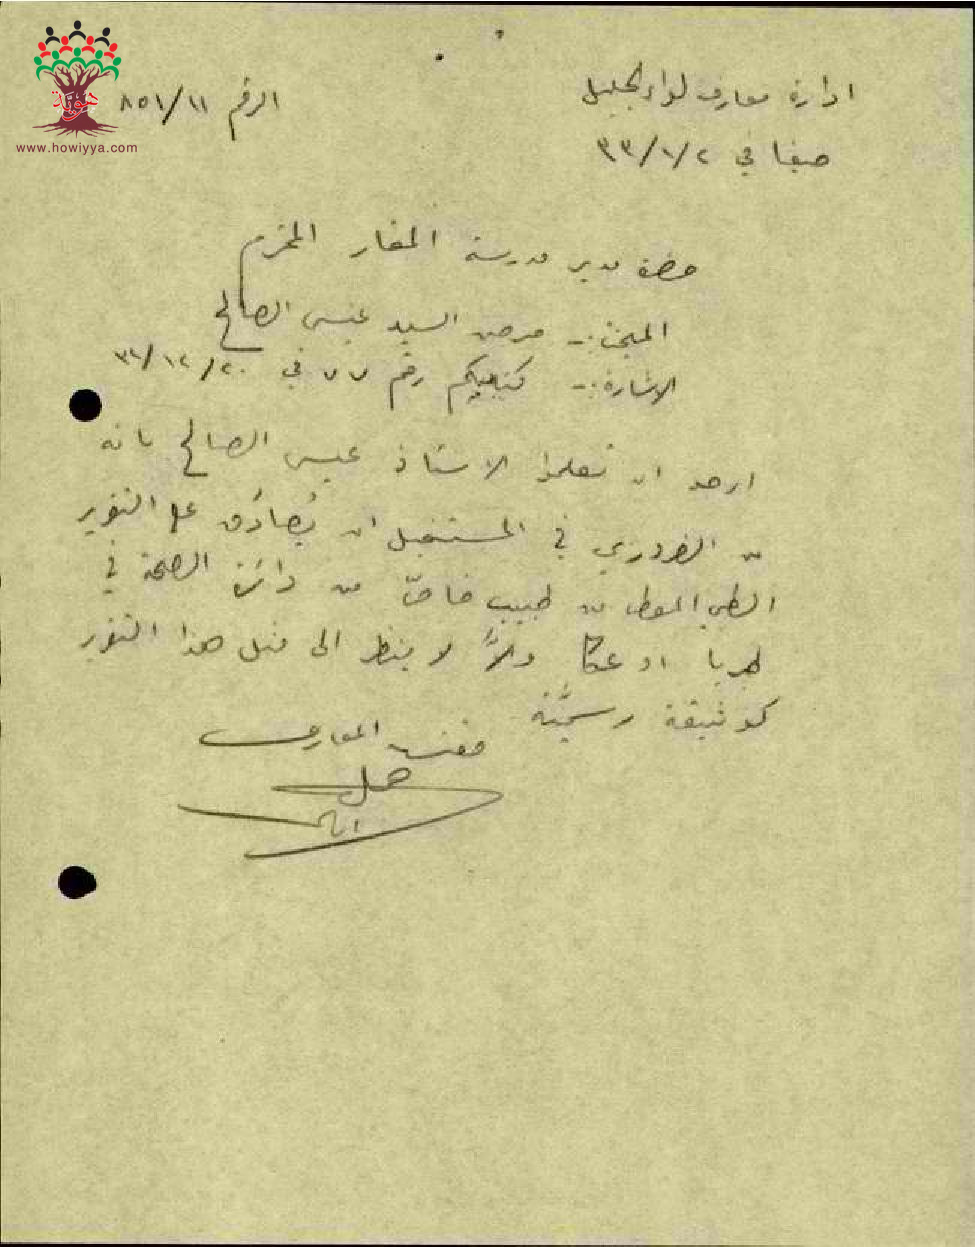 هوية
www.howiyya.com
ادارة معارف لواء الجليل
الرقم ٨٥١/١١
حيفا في ٣٣/١/٢
حضرة مدير مدرسة المغار المحترم
المبحث :- مرض السيد عيسى الصالح
الاشارة :- كتابكم رقم ٧٧ في ٣٢/١٢/٢٠
ارجو ان تعلموا الاستاذ عيسى الصالح بانه
من الضروري في المستقبل ان يُصادَق على التقرير
الطبي المعطى من طبيب خاصّ من دائرة الصحة في
طبريا او عكا والاّ لا ينظر الى مثل هذا التقرير
كوثيقة رسميَّة
مفتش المعارف